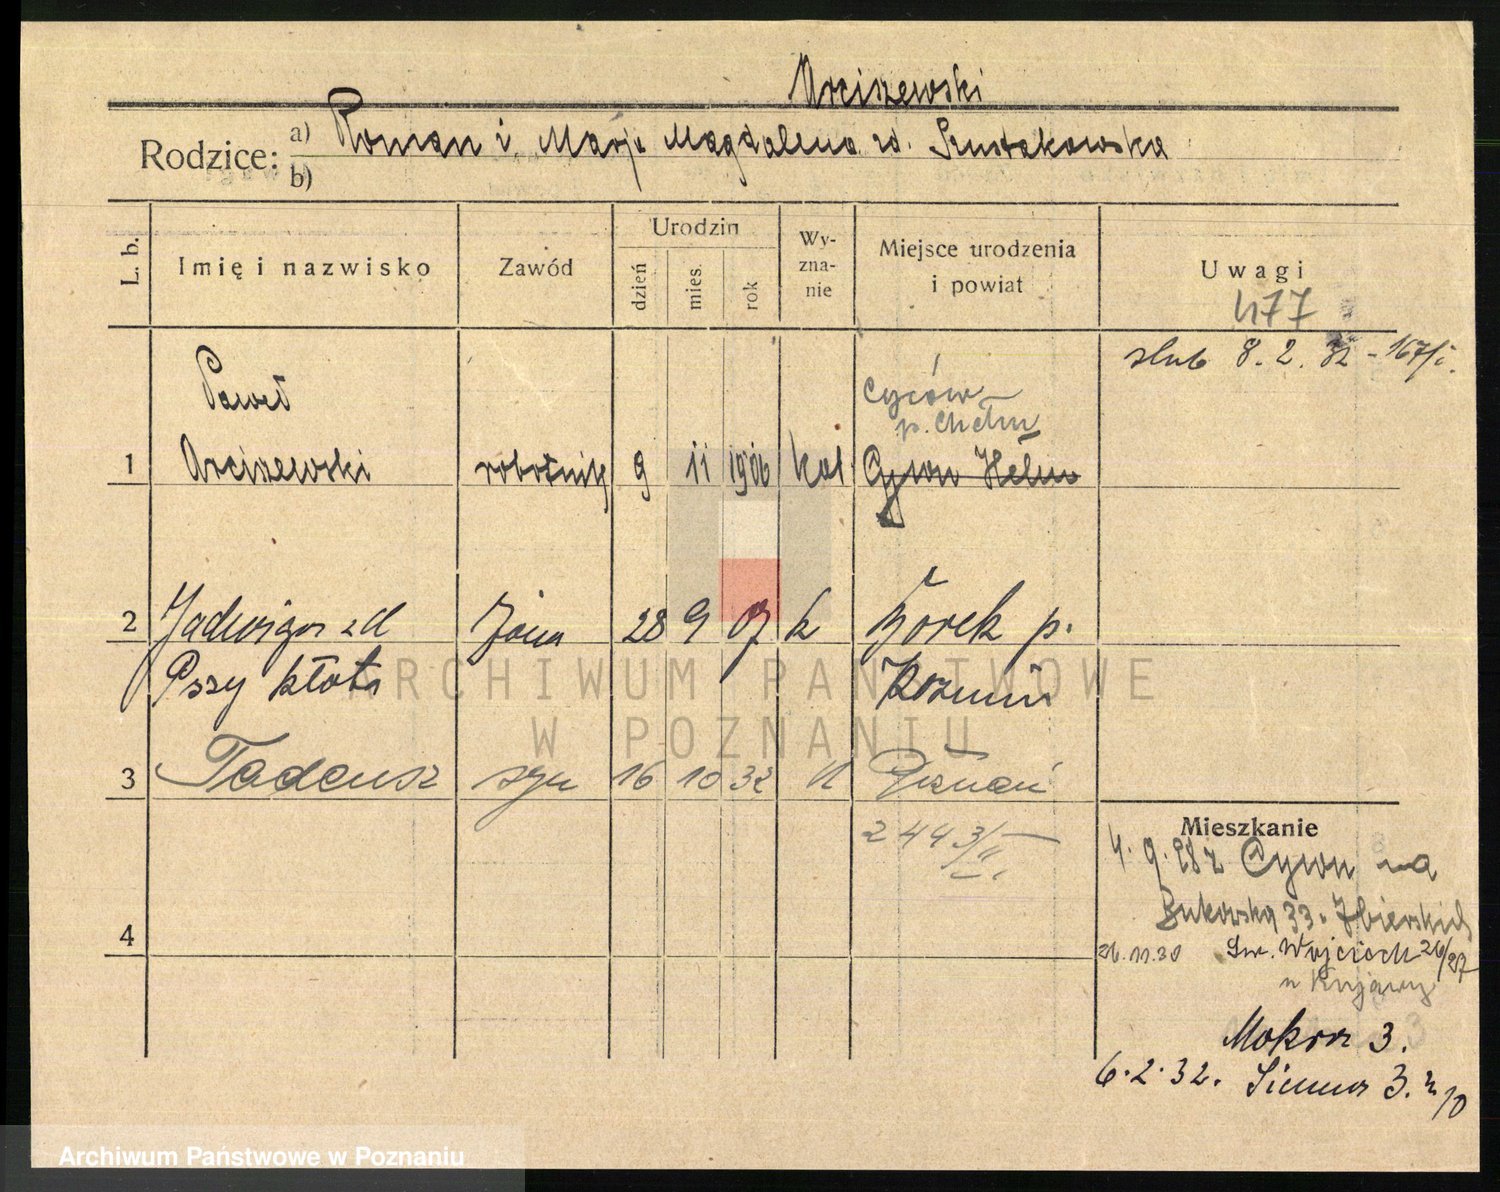 Arciszewski
Rodzice: a) Roman i Marja Magdalena zd.
b)
L. b.
Imię i nazwisko
Zawód
Urodzin
dzień
mies.
rok
Wy-
zna-
nie
Miejsce urodzenia
i powiat
Uwagi
477
ślub 8. 2. 32 - 167/
Paweł
Cyców
p. Chełm
1 Arciszewski robotnik 9 11 1906 kat Cycow Helm
2 Jadwiga zd żona 28 9 07 k Borek p.
Przykłota Koźmin
3 Tadeusz syn 16 10 32 k Poznań
2443/II.
4
Mieszkanie
4. 9. 28 z Cycow na
Bukowska 33
26.11.30 Św. Wojciech 26/27
u Kujawy
Mokra 3.
6.2.32. 3. 10
ARCHIWUM PAŃSTWOWE
W POZNANIU
Archiwum Państwowe w Poznaniu